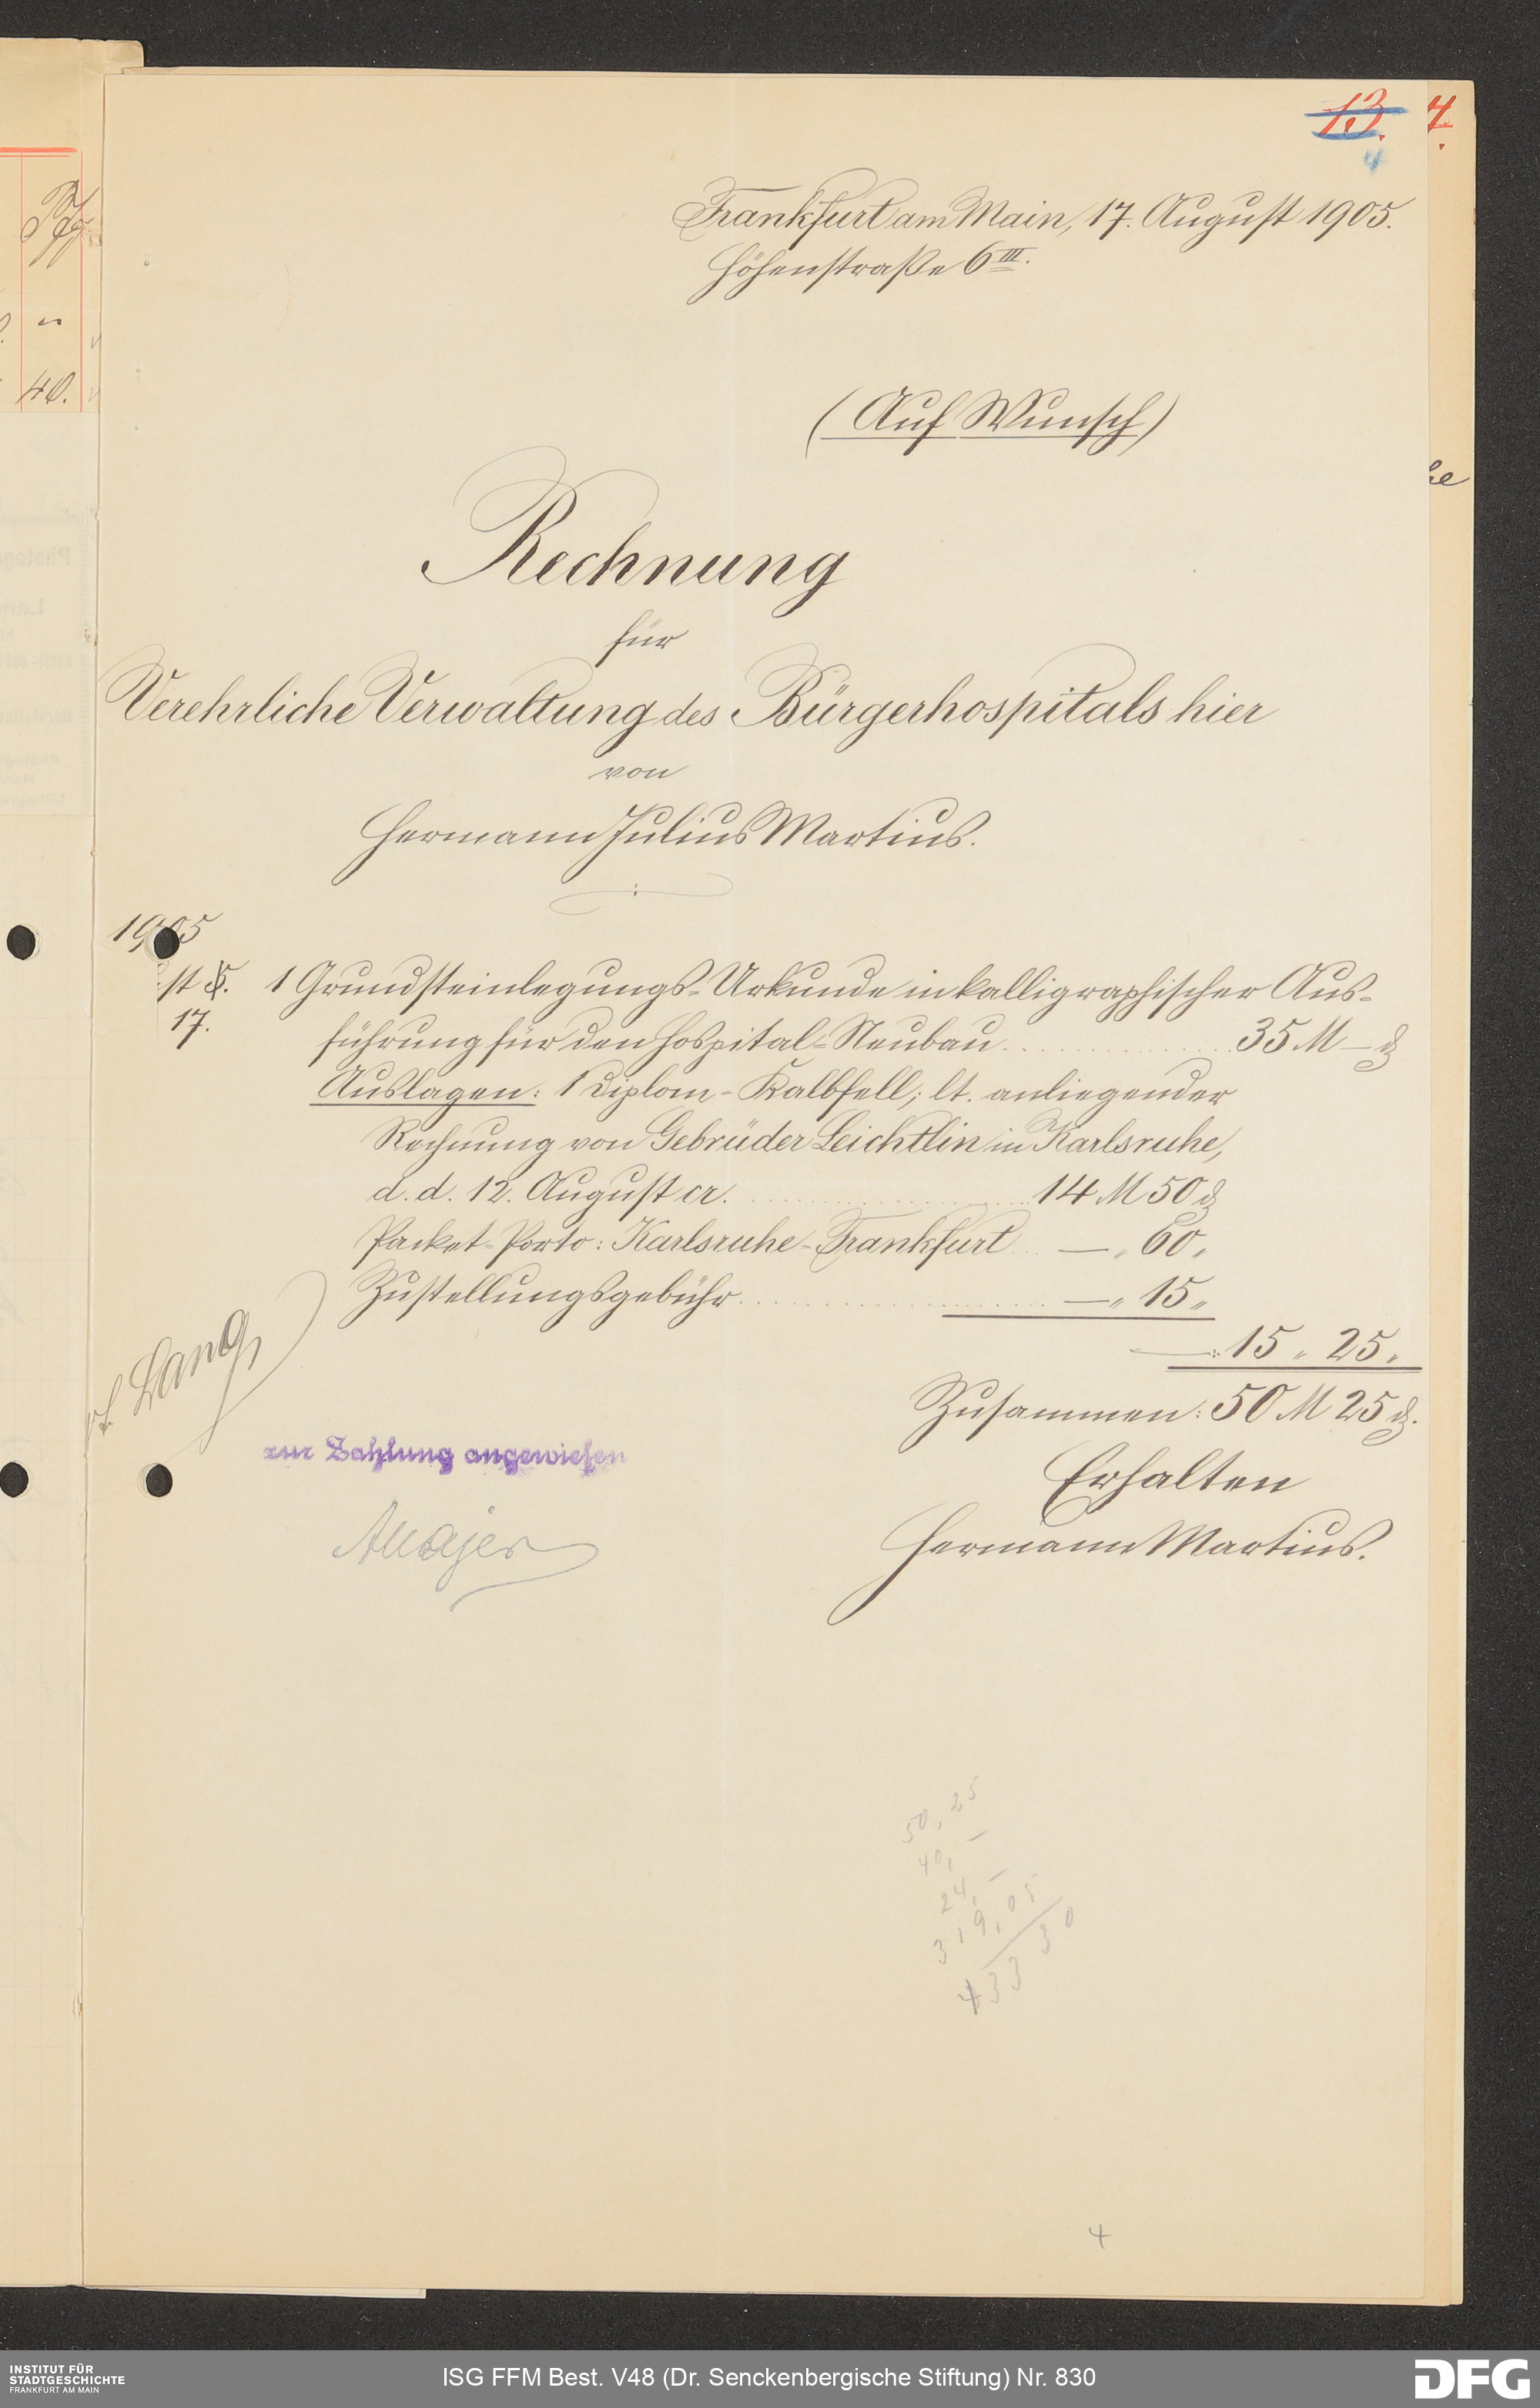 13. 4.
4
Frankfurt am Main, 17. August 1905.
Höhenstraße 6 III.
(Auf Wunsch)
Rechnung
für
Verehrliche Verwaltung des Bürgerhospitals hier
von
Hermann Julius Martius.
1905
17.
1 Grundsteinlegungs-Urkunde in kalligraphischer Aus-
führung für den Hospital-Neubau 35 M — ₰
Auslagen: 1 Diplom-Kalbfell, lt. anliegender
Rechnung von Gebrüder Leichtlin in Karlsruhe,
d. d. 12. August cr. 14 M 50 ₰
Packet-Porto: Karlsruhe-Frankfurt — „ 60 „
Zustellungsgebühr — „ 15 „
15 „ 25 „
Zusammen: 50 M 25 ₰.
Lang
zur Zahlung angewiesen
Erhalten
Hermann Martius.
50,25
40,—
24,—
319,05
433 30
4
Pfg
40.
INSTITUT FÜR
STADTGESCHICHTE
FRANKFURT AM MAIN
ISG FFM Best. V48 (Dr. Senckenbergische Stiftung) Nr. 830
DFG